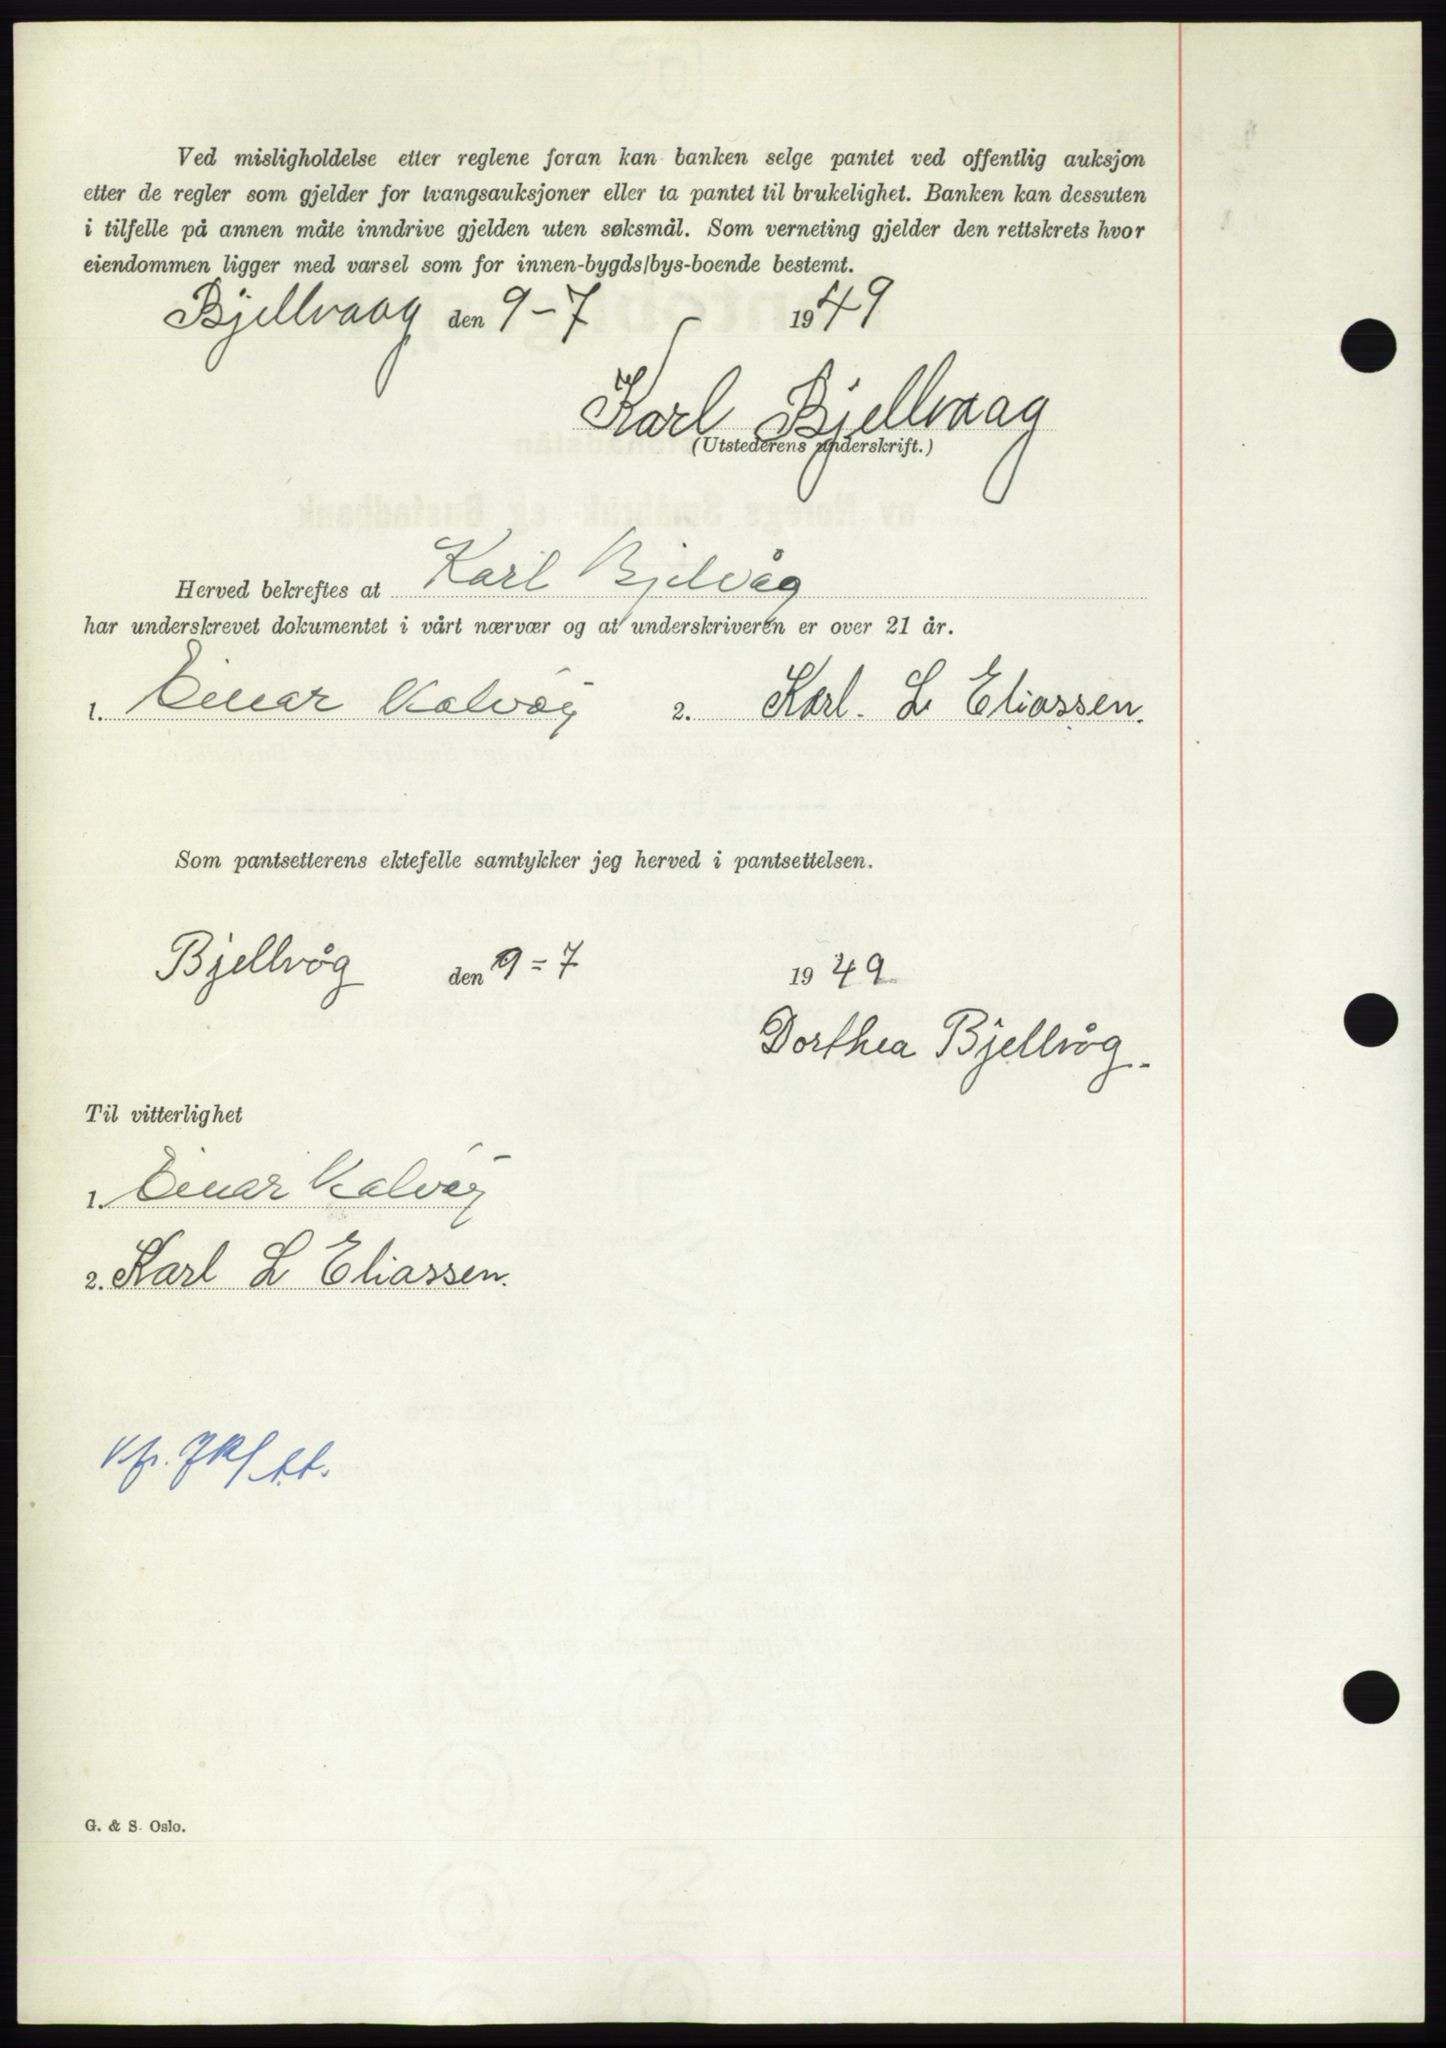 Ved misligholdelse etter reglene foran kan banken selge pantet ved offentlig auksjon
etter de regler som gjelder for tvangsauksjoner eller ta pantet til brukelighet. Banken kan dessuten
i tilfelle på annen måte inndrive gjelden uten søksmål. Som verneting gjelder den rettskrets hvor
eiendommen ligger med varsel som for innen-bygds/bys-boende bestemt.
Bjellvaag den 9-7 1949
Karl Bjellvaag
(Utstederens underskrift.)
Herved bekreftes at Karl Bjelvåg
har underskrevet dokumentet i vårt nærvær og at underskriveren er over 21 år.
1. Einar Kalvåg 2. Karl. L Eliassen.
Som pantsetterens ektefelle samtykker jeg herved i pantsettelsen.
Bjellvåg den 9-7 1949
Dorthea Bjellvåg.
Til vitterlighet
1. Einar Kalvåg
2. Karl L Eliassen.
G. & S. Oslo.